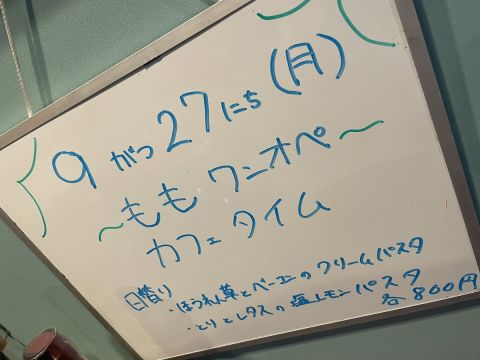 9がつ27にち(月)
～ももワンオペ～
カフェタイム
日替り
・ほうれん草とベーコンのクリームパスタ
・とりとレタスの塩レモンパスタ
各800円